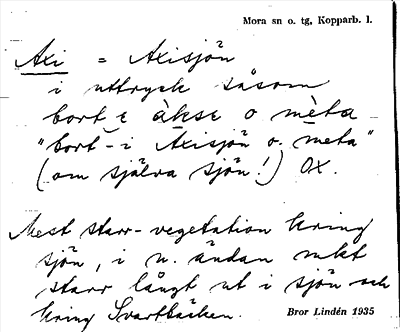 Mora sn o. tg, Kopparb. l.
Axi = Axisjön
i uttryck såsom
bort ɛ àkse o mèta
"bort i Axisjön o. meta"
(om själva sjön!) OX.
Mest starr-vegetation kring
sjön, i n. ändan mkt
starr långt ut i sjön och
kring Svartbäcken.
Bror Lindén 1935